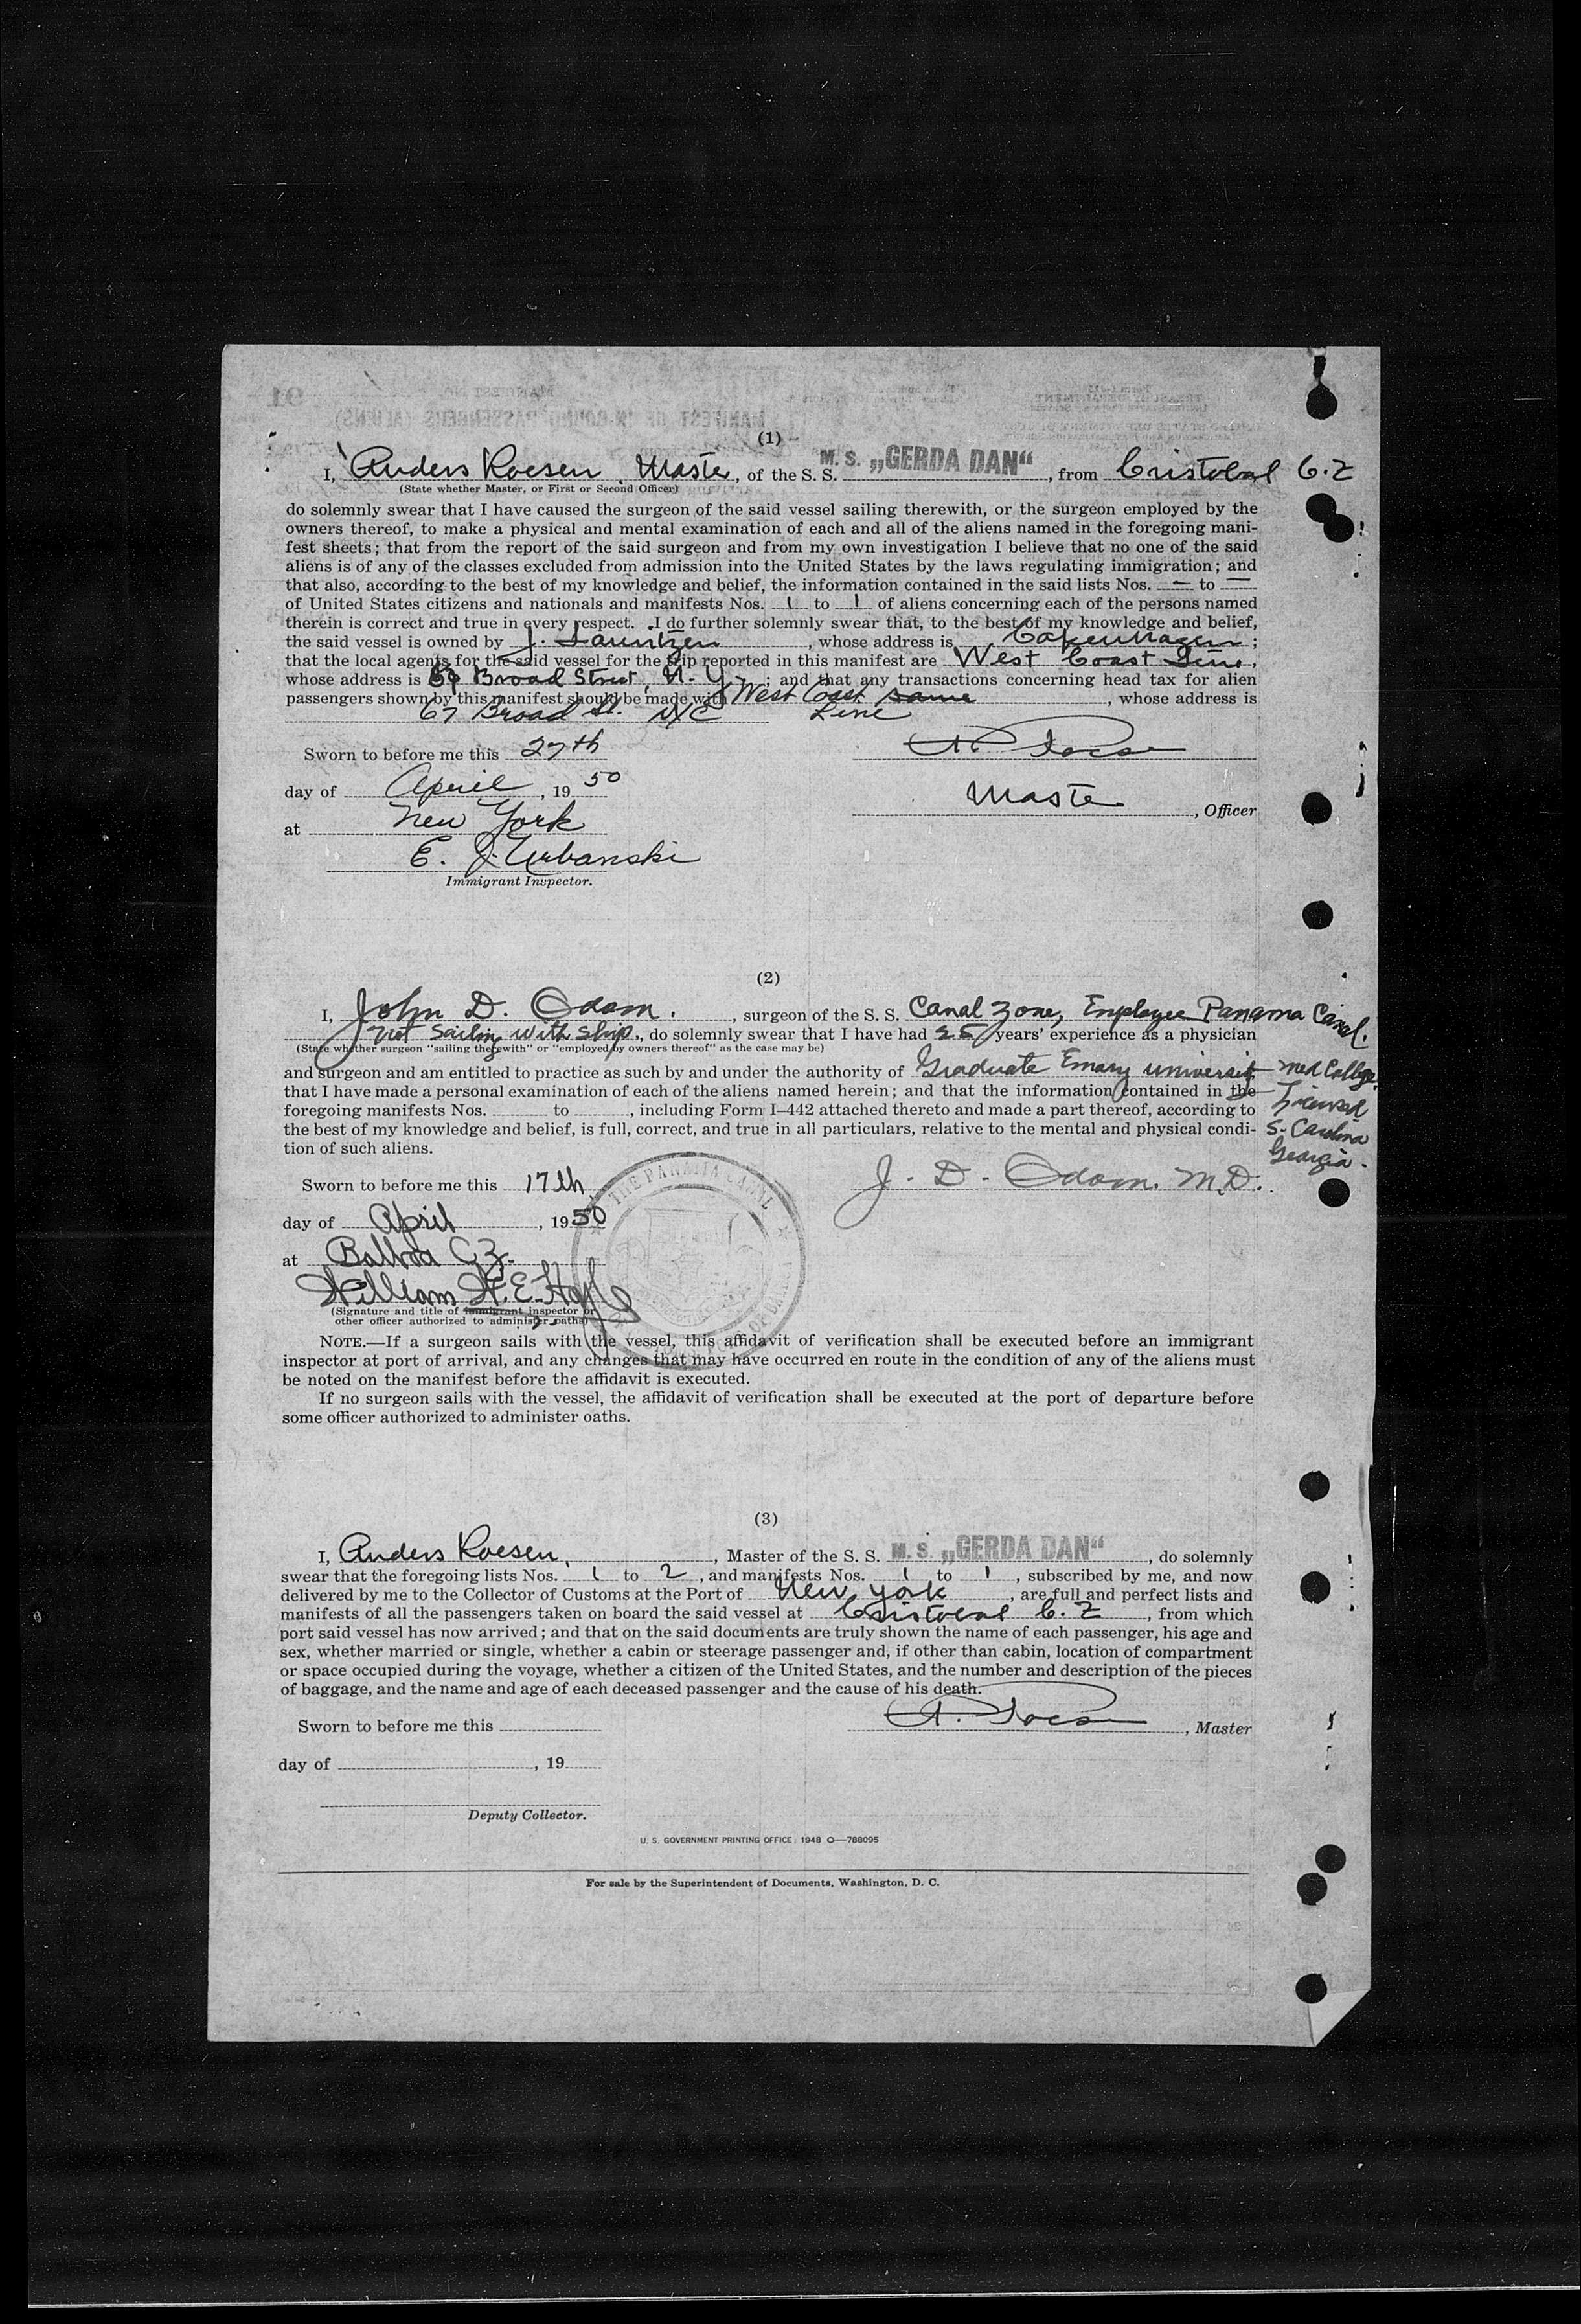 (1)
I, Anders Roesen, Master, of the S. S. M. S. „GERDA DAN“, from Cristobal C.Z
(State whether Master, or First or Second Officer)
do solemnly swear that I have caused the surgeon of the said vessel sailing therewith, or the surgeon employed by the
owners thereof, to make a physical and mental examination of each and all of the aliens named in the foregoing mani-
fest sheets; that from the report of the said surgeon and from my own investigation I believe that no one of the said
aliens is of any of the classes excluded from admission into the United States by the laws regulating immigration; and
that also, according to the best of my knowledge and belief, the information contained in the said lists Nos. — to —
of United States citizens and nationals and manifests Nos. 1 to 1 of aliens concerning each of the persons named
therein is correct and true in every respect. I do further solemnly swear that, to the best of my knowledge and belief,
the said vessel is owned by J. Lauritzen, whose address is Copenhagen;
that the local agents for the said vessel for the trip reported in this manifest are West Coast Line,
whose address is Broad Street, N. Y.; and that any transactions concerning head tax for alien
passengers shown by this manifest should be made with West Coast same, whose address is
67 Broad St. NYC Line
Sworn to before me this 27th
day of April, 19 50
at New York
E. J. Urbanski
Immigrant Inspector.
A. Roesen
Master, Officer
(2)
I, John D. Odom., surgeon of the S. S. Canal Zone, Employee Panama Canal.
Not Sailing with ship., do solemnly swear that I have had 25 years' experience as a physician
(State whether surgeon "sailing therewith" or "employed by owners thereof" as the case may be)
and surgeon and am entitled to practice as such by and under the authority of Graduate Emory University Med College.
that I have made a personal examination of each of the aliens named herein; and that the information contained in the
foregoing manifests Nos. to , including Form I-442 attached thereto and made a part thereof, according to Licensed
the best of my knowledge and belief, is full, correct, and true in all particulars, relative to the mental and physical condi- S. Carolina
tion of such aliens. Georgia.
Sworn to before me this 17th
J. D. Odom. M.D.
THE PANAMA CANAL
day of April, 1950
at Balboa C.Z.
William H. E. Hoyle
(Signature and title of immigrant inspector or
other officer authorized to administer oaths)
NOTE.—If a surgeon sails with the vessel, this affidavit of verification shall be executed before an immigrant
inspector at port of arrival, and any changes that may have occurred en route in the condition of any of the aliens must
be noted on the manifest before the affidavit is executed.
If no surgeon sails with the vessel, the affidavit of verification shall be executed at the port of departure before
some officer authorized to administer oaths.
(3)
I, Anders Roesen, Master of the S. S. M. S. „GERDA DAN“, do solemnly
swear that the foregoing lists Nos. 1 to 2, and manifests Nos. 1 to 1, subscribed by me, and now
delivered by me to the Collector of Customs at the Port of New York, are full and perfect lists and
manifests of all the passengers taken on board the said vessel at Cristobal C. Z, from which
port said vessel has now arrived; and that on the said documents are truly shown the name of each passenger, his age and
sex, whether married or single, whether a cabin or steerage passenger and, if other than cabin, location of compartment
or space occupied during the voyage, whether a citizen of the United States, and the number and description of the pieces
of baggage, and the name and age of each deceased passenger and the cause of his death.
Sworn to before me this
A. Roesen, Master
day of , 19
Deputy Collector.
U. S. GOVERNMENT PRINTING OFFICE: 1948 O—788095
For sale by the Superintendent of Documents, Washington, D. C.